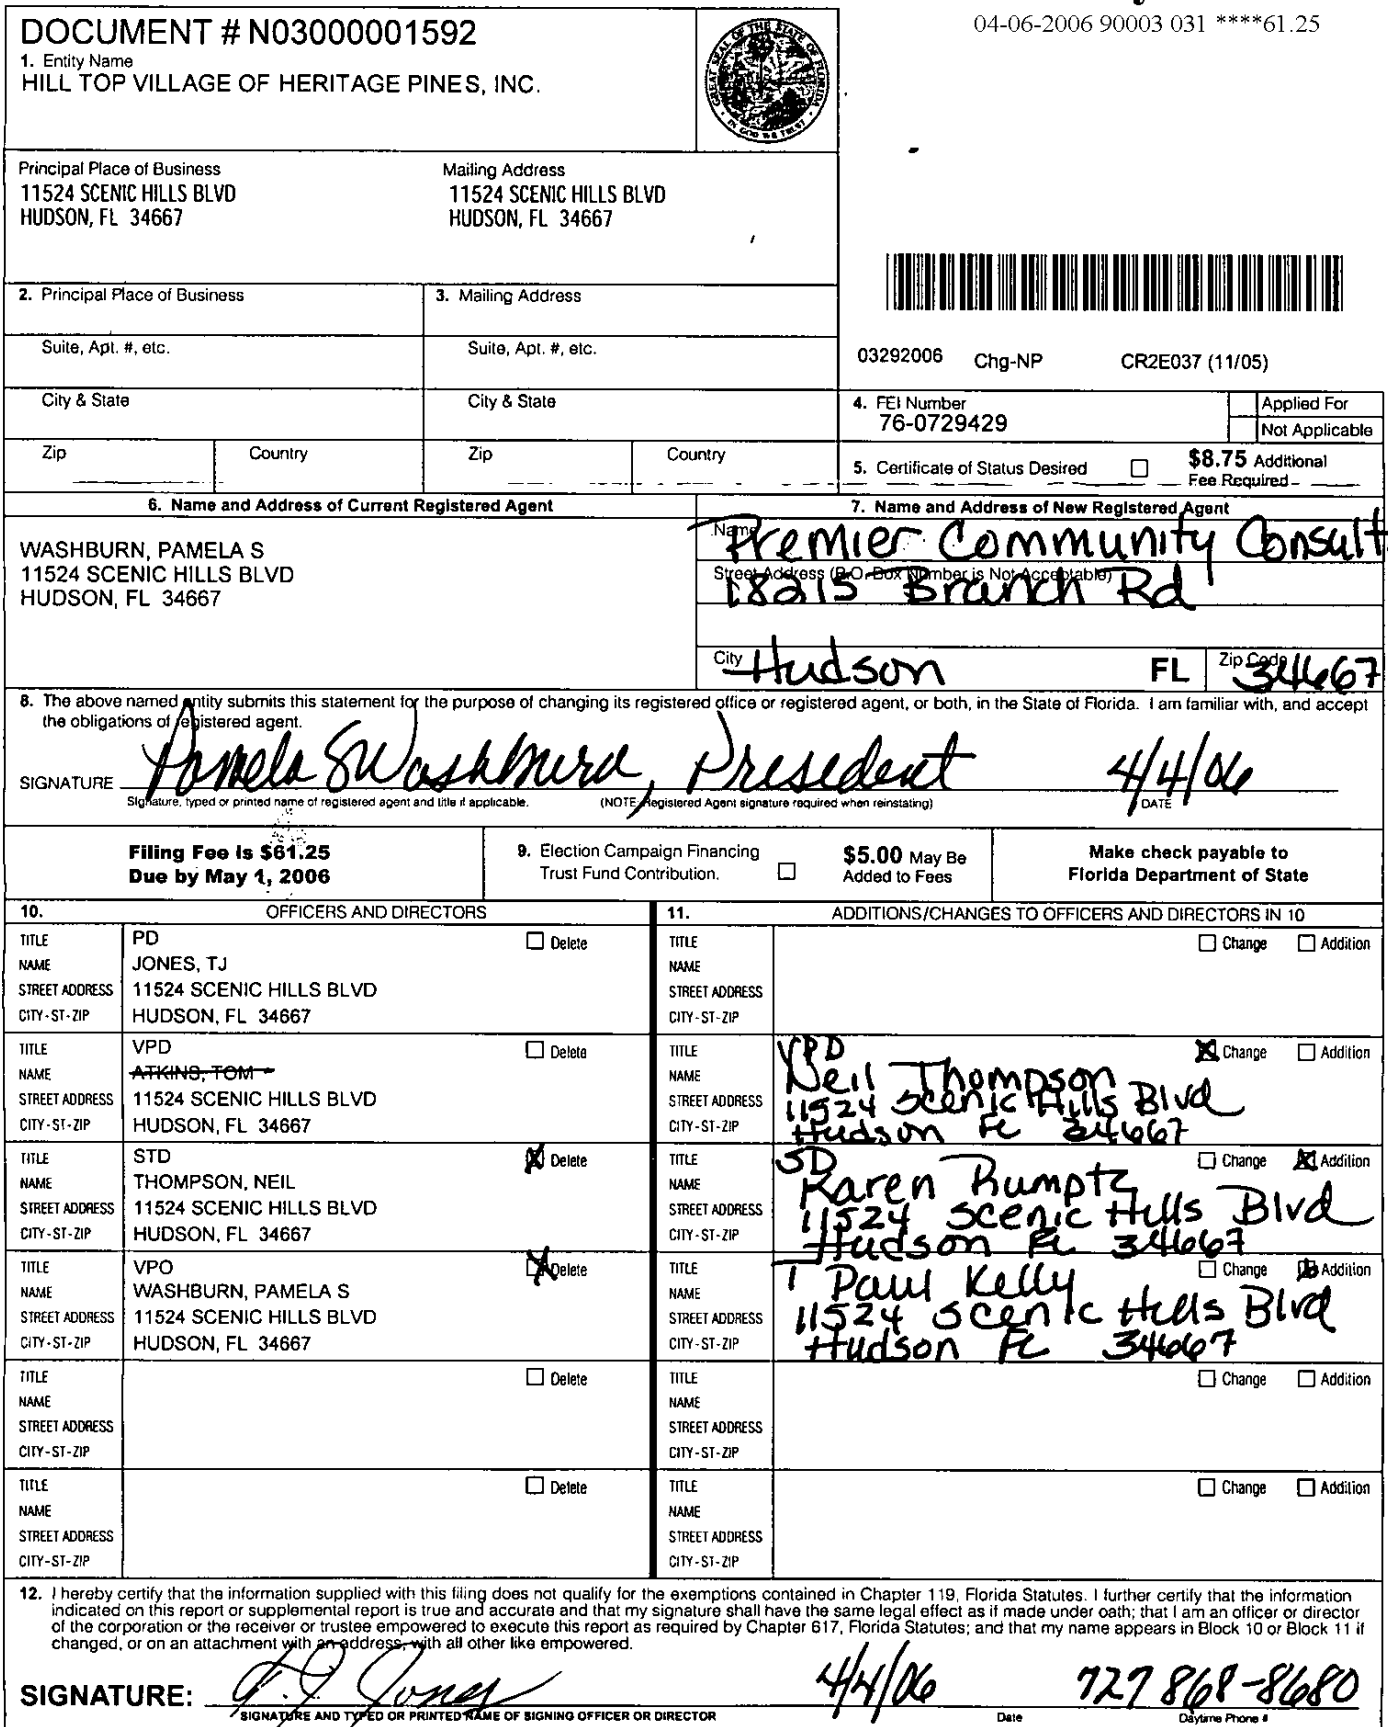 04-06-2006 90003 031 ****61.25
DOCUMENT # N03000001592
1. Entity Name
HILL TOP VILLAGE OF HERITAGE PINES, INC.
GREAT SEAL OF THE STATE OF FLORIDA
IN GOD WE TRUST
Principal Place of Business
11524 SCENIC HILLS BLVD
HUDSON, FL 34667
Mailing Address
11524 SCENIC HILLS BLVD
HUDSON, FL 34667
2. Principal Place of Business
3. Mailing Address
Suite, Apt. #, etc.
Suite, Apt. #, etc.
03292006 Chg-NP CR2E037 (11/05)
City & State
City & State
4. FEI Number
76-0729429
Applied For
Not Applicable
Zip
Country
Zip
Country
5. Certificate of Status Desired
$8.75 Additional
Fee Required
6. Name and Address of Current Registered Agent
WASHBURN, PAMELA S
11524 SCENIC HILLS BLVD
HUDSON, FL 34667
7. Name and Address of New Registered Agent
Name Premier Community Consult
Street Address (P.O. Box Number is Not Acceptable)
18215 Branch Rd
City Hudson FL Zip Code 34667
8. The above named entity submits this statement for the purpose of changing its registered office or registered agent, or both, in the State of Florida. I am familiar with, and accept
the obligations of registered agent.
SIGNATURE Pamela S Washburn, President 4/4/06
Signature, typed or printed name of registered agent and title if applicable. (NOTE: Registered Agent signature required when reinstating) DATE
Filing Fee is $61.25
Due by May 1, 2006
9. Election Campaign Financing
Trust Fund Contribution.
$5.00 May Be
Added to Fees
Make check payable to
Florida Department of State
10. OFFICERS AND DIRECTORS
11. ADDITIONS/CHANGES TO OFFICERS AND DIRECTORS IN 10
TITLE PD Delete
NAME JONES, TJ
STREET ADDRESS 11524 SCENIC HILLS BLVD
CITY-ST-ZIP HUDSON, FL 34667
TITLE Change Addition
NAME
STREET ADDRESS
CITY-ST-ZIP
TITLE VPD Delete
NAME ATKINS, TOM
STREET ADDRESS 11524 SCENIC HILLS BLVD
CITY-ST-ZIP HUDSON, FL 34667
TITLE VPD X Change Addition
NAME Neil Thompson
STREET ADDRESS 11524 Scenic Hills Blvd
CITY-ST-ZIP Hudson FL 34667
TITLE STD X Delete
NAME THOMPSON, NEIL
STREET ADDRESS 11524 SCENIC HILLS BLVD
CITY-ST-ZIP HUDSON, FL 34667
TITLE SD Change X Addition
NAME Karen Rumptz
STREET ADDRESS 11524 Scenic Hills Blvd
CITY-ST-ZIP Hudson FL 34667
TITLE VPO X Delete
NAME WASHBURN, PAMELA S
STREET ADDRESS 11524 SCENIC HILLS BLVD
CITY-ST-ZIP HUDSON, FL 34667
TITLE T Change Addition
NAME Paul Kelly
STREET ADDRESS 11524 Scenic Hills Blvd
CITY-ST-ZIP Hudson FL 34667
TITLE Delete
NAME
STREET ADDRESS
CITY-ST-ZIP
TITLE Change Addition
NAME
STREET ADDRESS
CITY-ST-ZIP
TITLE Delete
NAME
STREET ADDRESS
CITY-ST-ZIP
TITLE Change Addition
NAME
STREET ADDRESS
CITY-ST-ZIP
12. I hereby certify that the information supplied with this filing does not qualify for the exemptions contained in Chapter 119, Florida Statutes. I further certify that the information
indicated on this report or supplemental report is true and accurate and that my signature shall have the same legal effect as if made under oath; that I am an officer or director
of the corporation or the receiver or trustee empowered to execute this report as required by Chapter 617, Florida Statutes; and that my name appears in Block 10 or Block 11 if
changed, or on an attachment with an address, with all other like empowered.
SIGNATURE: T. J. Jones 4/4/06 727 868-8680
SIGNATURE AND TYPED OR PRINTED NAME OF SIGNING OFFICER OR DIRECTOR Date Daytime Phone #